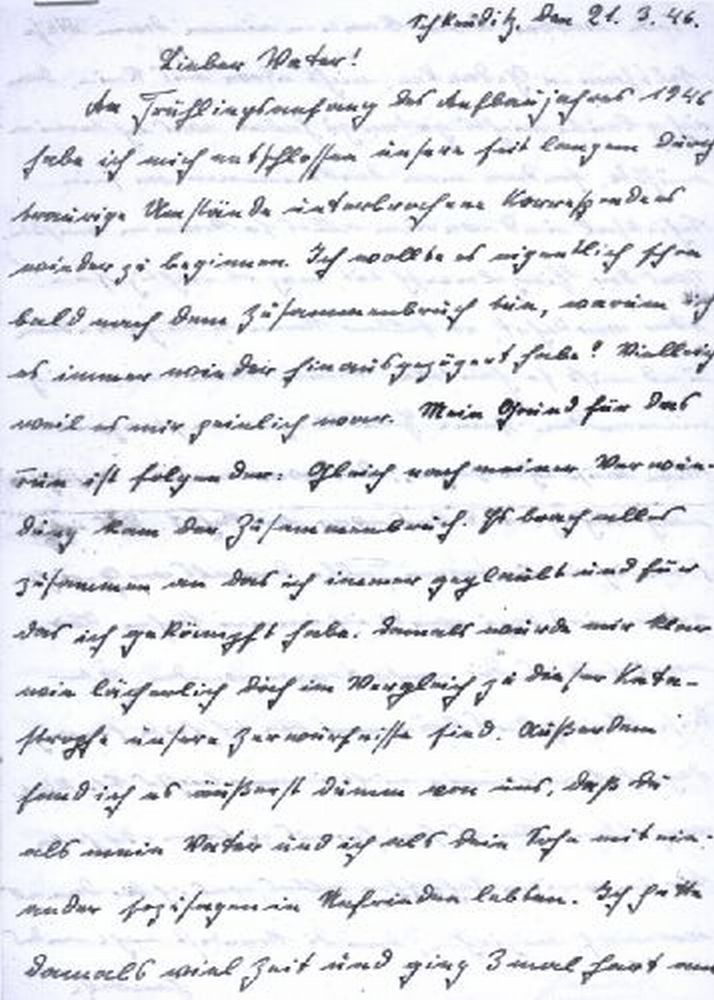 Schkeuditz, den 21. 3. 46.
Lieber Vater!
Am Frühlingsanfang des Aufbaujahres 1946
habe ich mich entschlossen unsere seit langem durch
traurige Umstände unterbrochene Korrespondens
wieder zu beginnen. Ich wollte es eigentlich schon
bald nach dem Zusammenbruch tun, warum ich
es immer wieder hinausgezögert habe? Vielleich
weil es mir peinlich war. Mein Grund für das
nun ist folgender: Gleich nach meiner Verwun-
dung kam der Zusammenbruch. Es brach alles
zusammen an das ich immer geglaubt und für
das ich gekämpft habe. Damals wurde mir klar
wie lächerlich doch im Vergleich zu dieser Kata-
strophe unsere Zerwürfnisse sind. Außerdem
fand ich es äußerst dumm von uns, daß du
als mein Vater und ich als dein Sohn mit ein-
ander sozusagen in Unfrieden lebten. Ich hatte
damals viel Zeit und ging 3 mal hart